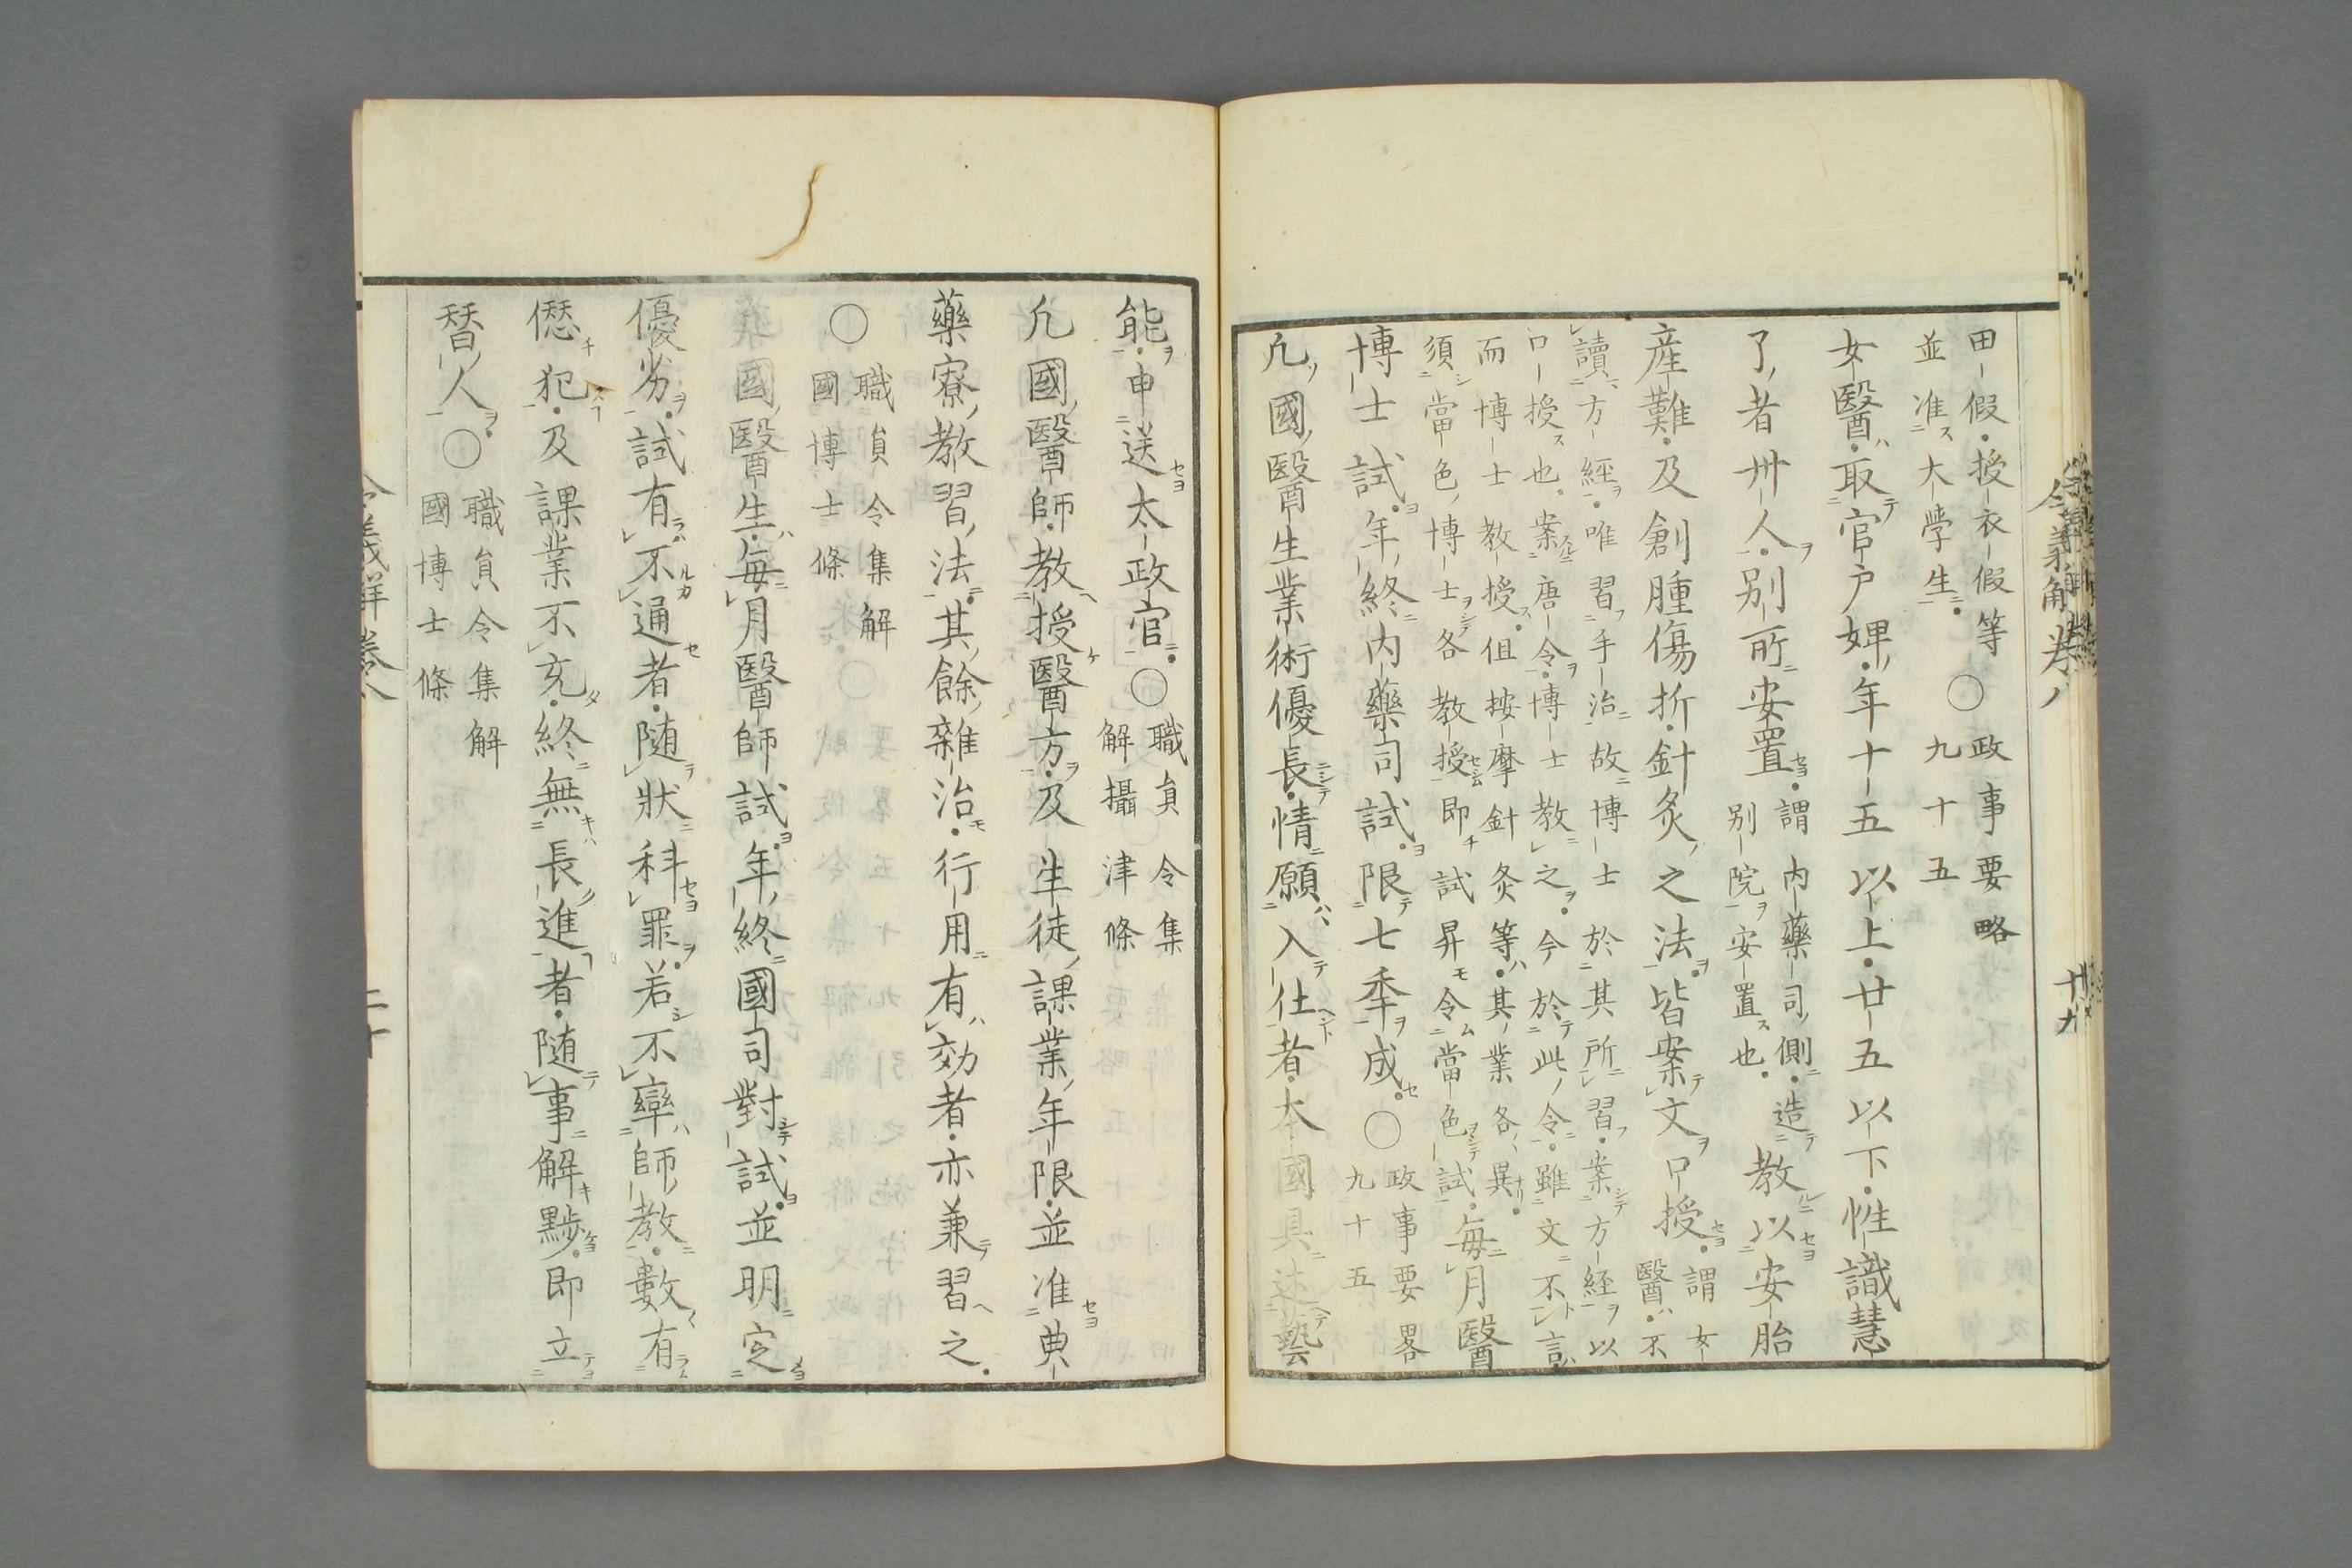 田假授衣假等
並准大学生
○
政事要略
九十五
女醫取官戸婢年十五以上廿五以下性識慧
了者卅人別所安置
謂内藥司側造
別院安置也
教以安胎
産難及創腫傷折針灸之法皆案文口授
謂女
醫不
讀方經唯習手治故博士於其所習案方経以
口授也案唐令博士教之今於此令雖文不言
而博士教授但按摩針灸等其業各異
須當色博士各教授即試昇令當色試
毎月醫
博士試年終内藥司試限七秊成○
政事要畧
九十五
凢國醫生業術優長情願入仕者本國具述藝
令義解卷八
十九
能申送太政官○
職員令集
解攝津條
凢國醫師教授醫方及生徒課業年限並准典
藥寮教習法其餘雜治行用有効者亦兼習之
○
職員令集解
國博士條
國醫生毎月醫師試年終國司對試並明定
優劣試有不通者随狀科罪若不率師教數有
𠍴犯及課業不充終無長進者随事解黜即立
替人○
職員令集解
國博士條
令義解卷八
二十